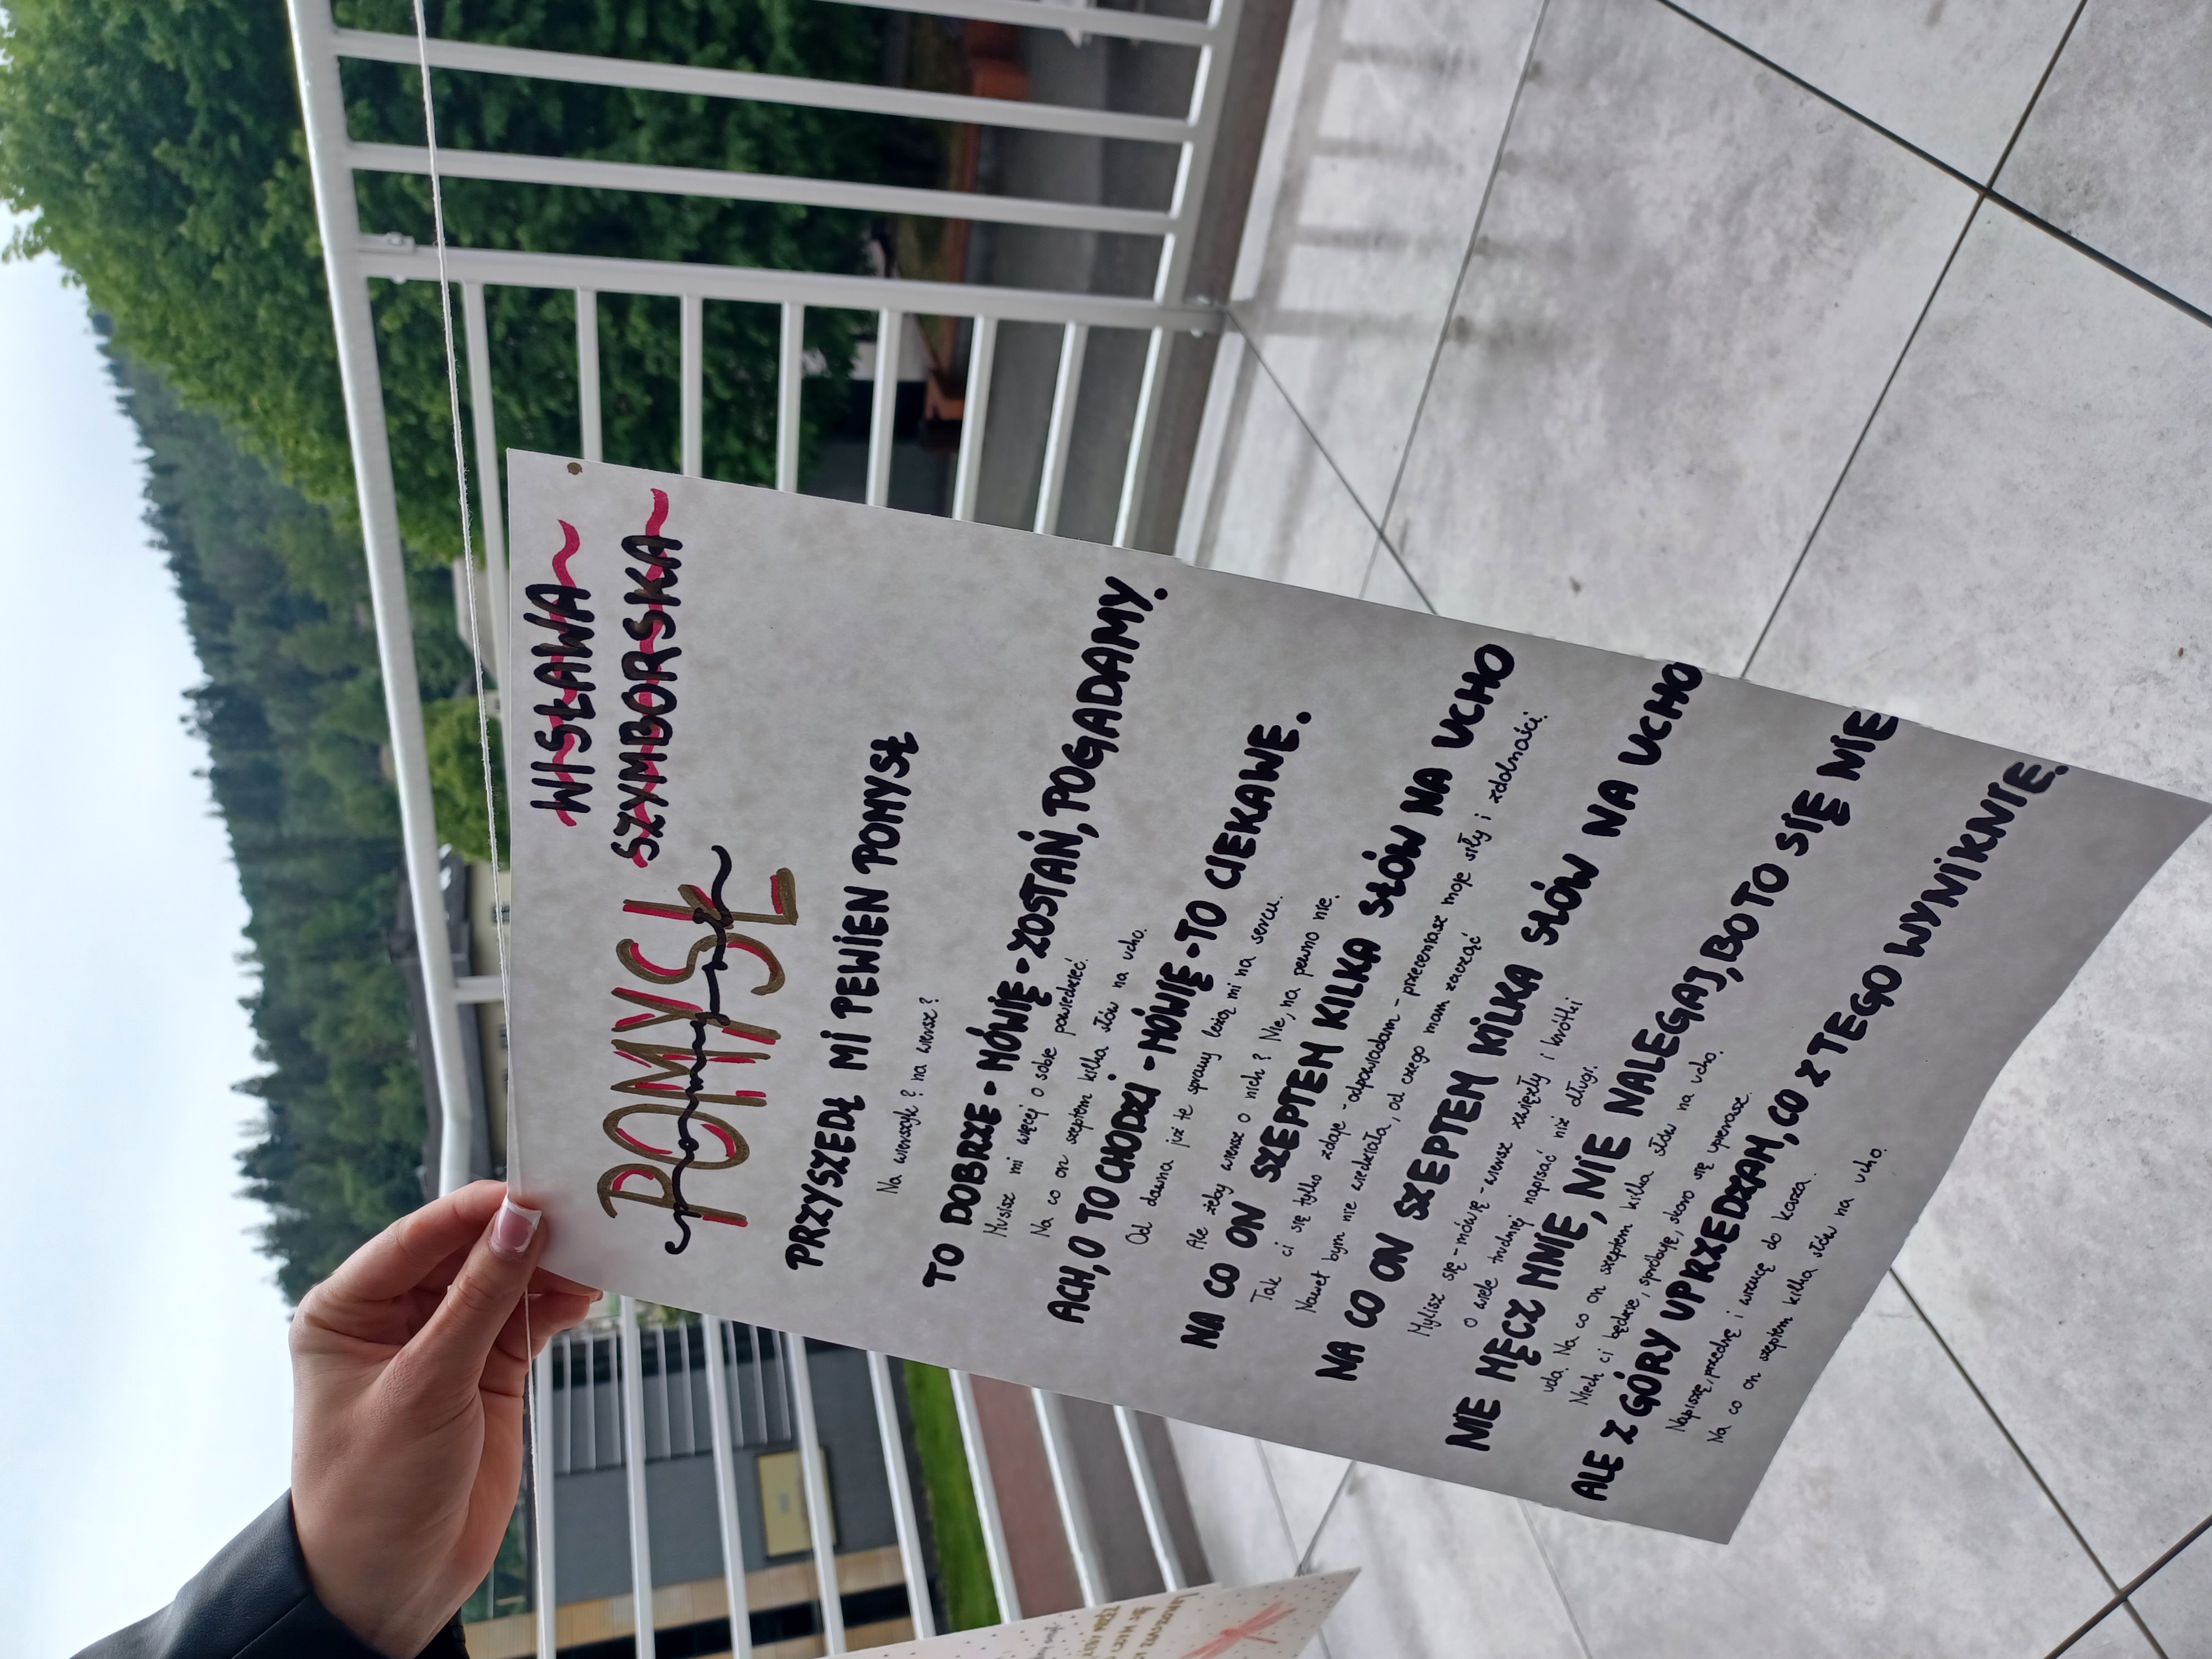 WISŁAWA
SZYMBORSKA
POMYSŁ
pomysł
PRZYSZEDŁ MI PEWIEN POMYSŁ
Na wierszyk? na wiersz?
TO DOBRZE - MÓWIĘ - ZOSTAŃ, POGADAMY.
Musisz mi więcej o sobie powiedzieć.
Na co on szeptem kilka słów na ucho.
ACH, O TO CHODZI - MÓWIĘ - TO CIEKAWE.
Od dawna już te sprawy leżą mi na sercu.
Ale żeby wiersz o nich? Nie, na pewno nie.
NA CO ON SZEPTEM KILKA SŁÓW NA UCHO
Tak ci się tylko zdaje - odpowiadam - przeceniasz moje siły i zdolności.
Nawet bym nie wiedziała, od czego mam zacząć
NA CO ON SZEPTEM KILKA SŁÓW NA UCHO
Mylisz się - mówię - wiersz zwięzły i krótki
o wiele trudniej napisać niż długi.
NIE MĘCZ MNIE, NIE NALEGAJ, BO TO SIĘ NIE
uda. Na co on szeptem kilka słów na ucho.
Niech ci będzie, spróbuję, skoro się upierasz.
ALE Z GÓRY UPRZEDZAM, CO Z TEGO WYNIKNIE.
Napiszę, przedrę i wrzucę do kosza.
Na co on szeptem kilka słów na ucho.